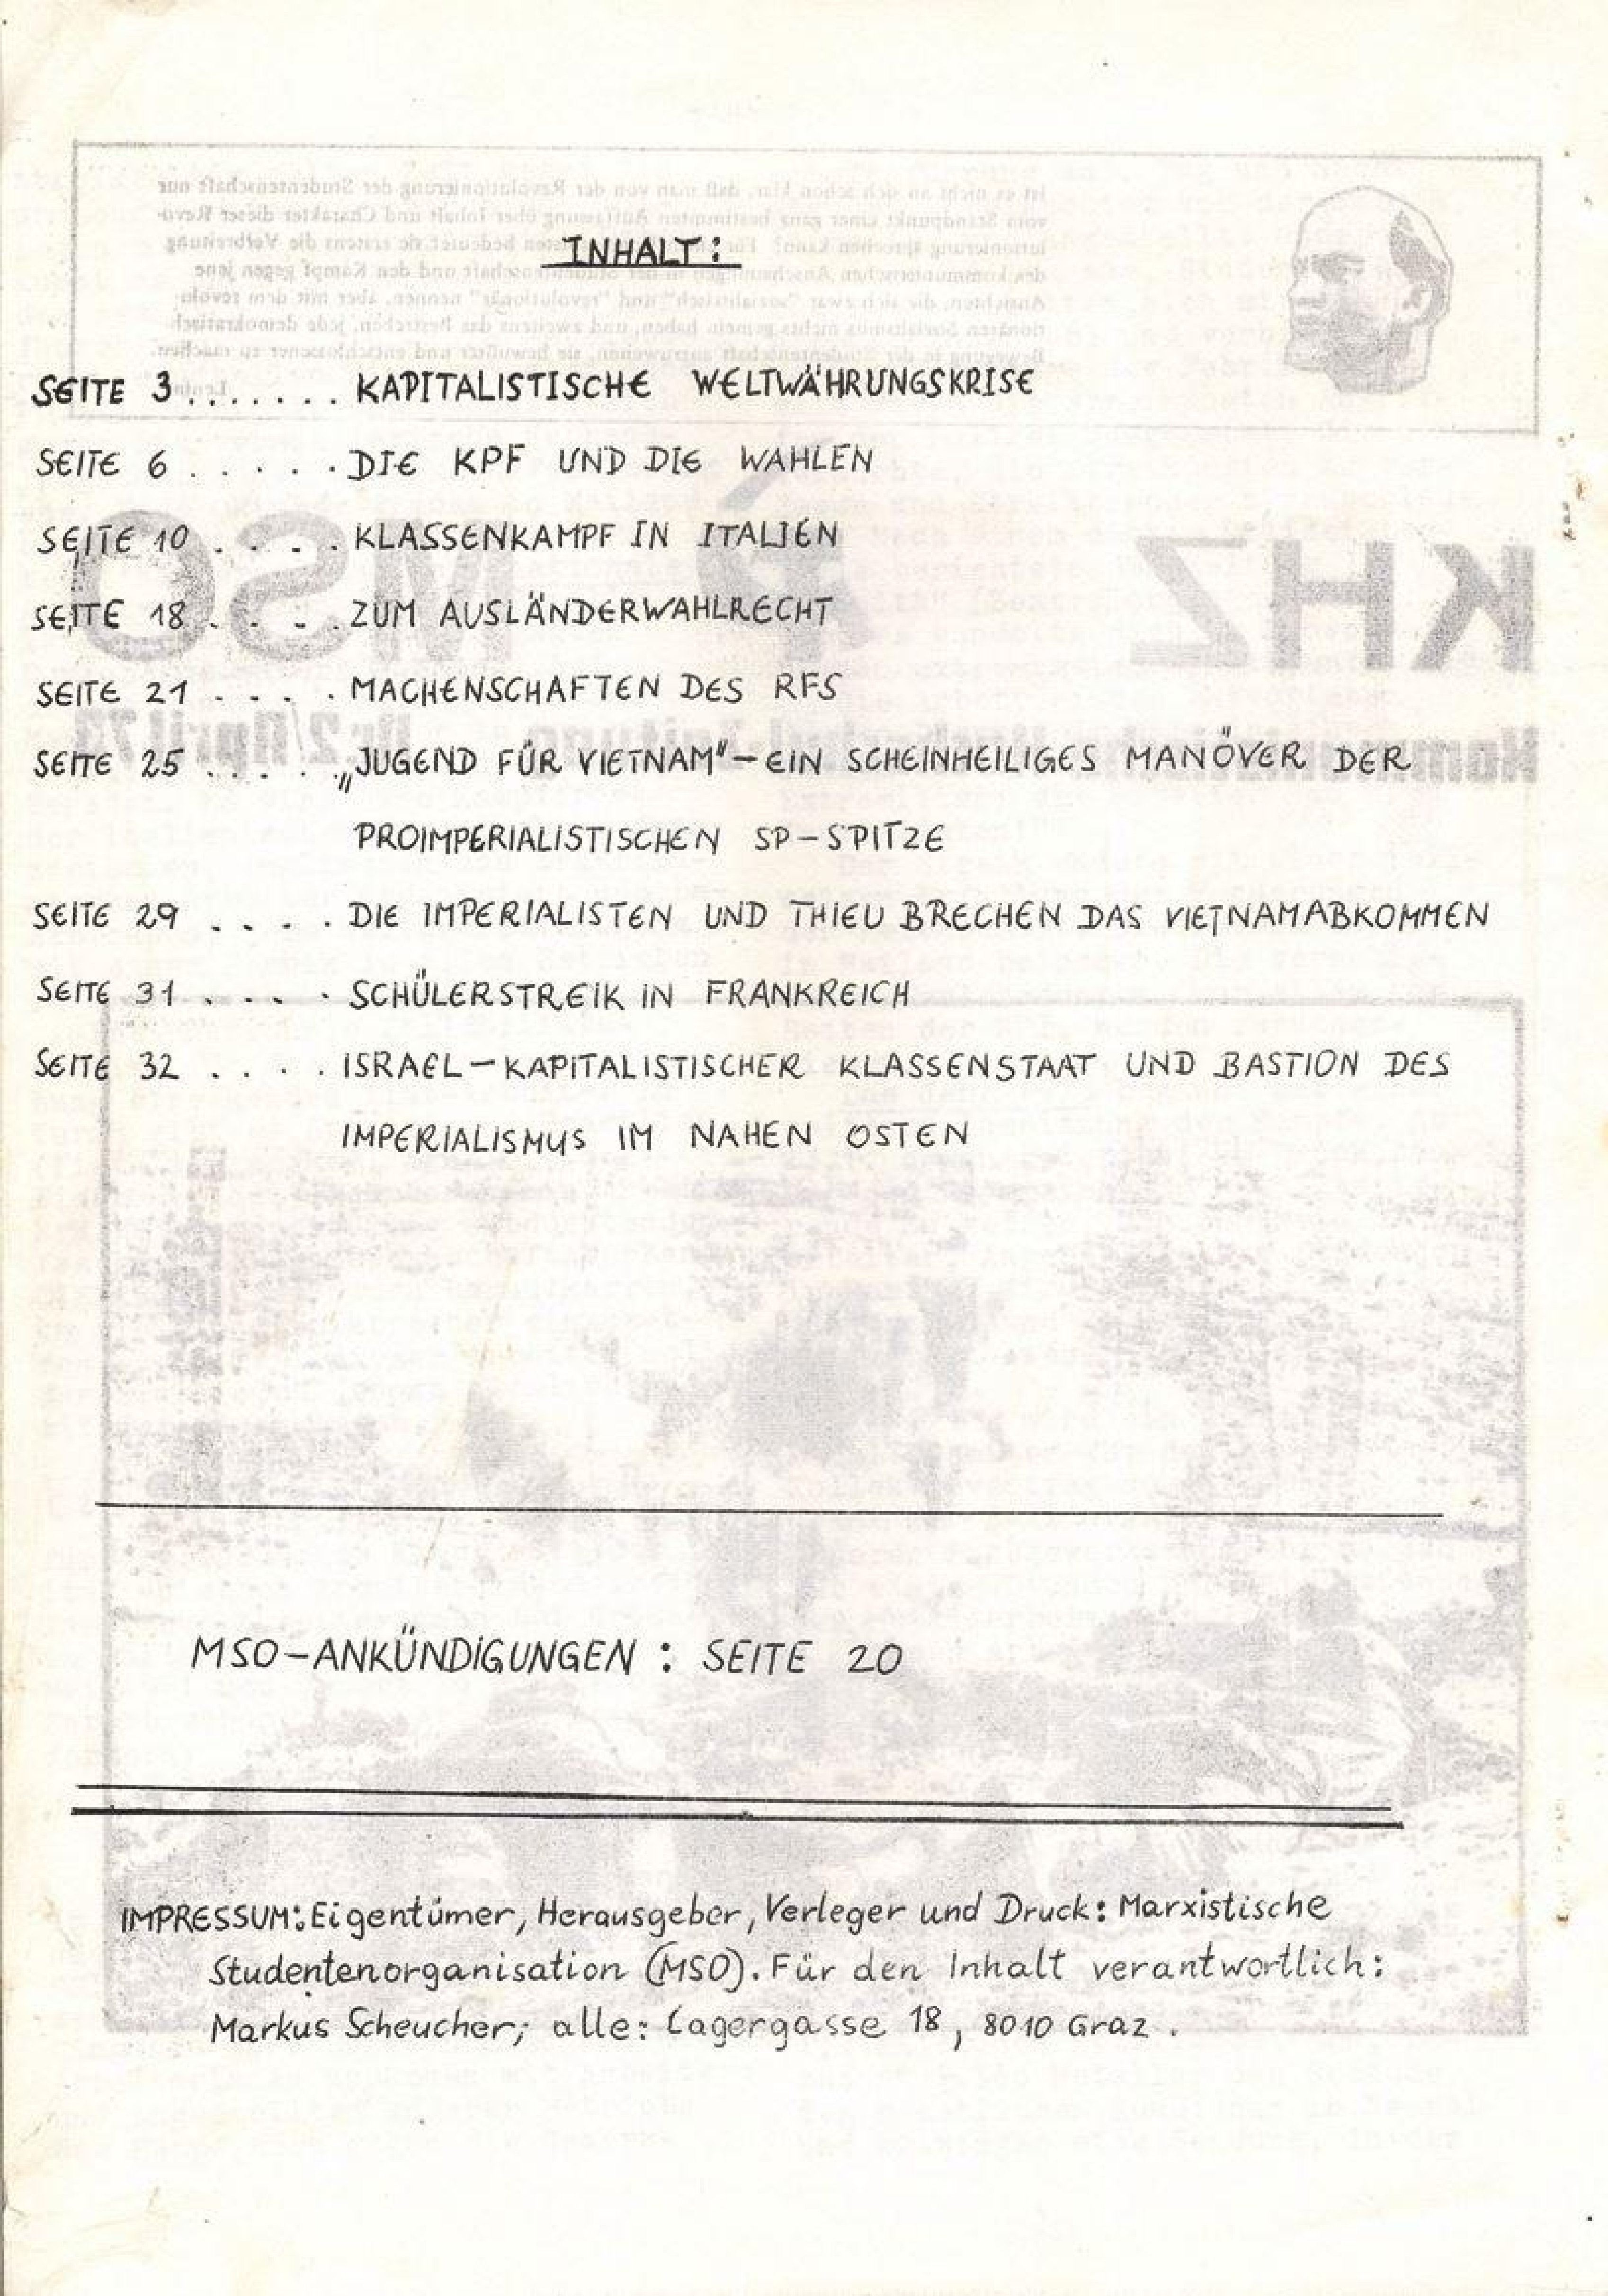 INHALT:
SEITE 3....... KAPITALISTISCHE WELTWÄHRUNGSKRISE
SEITE 6 ..... DIE KPF UND DIE WAHLEN
SEITE 10 .... KLASSENKAMPF IN ITALIEN
SEITE 18 .... ZUM AUSLÄNDERWAHLRECHT
SEITE 21 .... MACHENSCHAFTEN DES RFS
SEITE 25 .... „JUGEND FÜR VIETNAM" – EIN SCHEINHEILIGES MANÖVER DER
PROIMPERIALISTISCHEN SP-SPITZE
SEITE 29 .... DIE IMPERIALISTEN UND THIEU BRECHEN DAS VIETNAMABKOMMEN
SEITE 31 .... SCHÜLERSTREIK IN FRANKREICH
SEITE 32 .... ISRAEL – KAPITALISTISCHER KLASSENSTAAT UND BASTION DES
IMPERIALISMUS IM NAHEN OSTEN
MSO-ANKÜNDIGUNGEN : SEITE 20
IMPRESSUM: Eigentümer, Herausgeber, Verleger und Druck: Marxistische
Studentenorganisation (MSO). Für den Inhalt verantwortlich:
Markus Scheucher; alle: Lagergasse 18, 8010 Graz.